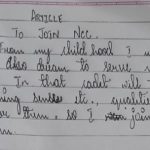 ARTICLE
TO JOIN NCC.
From my child hood I
Also dream to serve
In that cadet will
it's, qualities
them. so I join